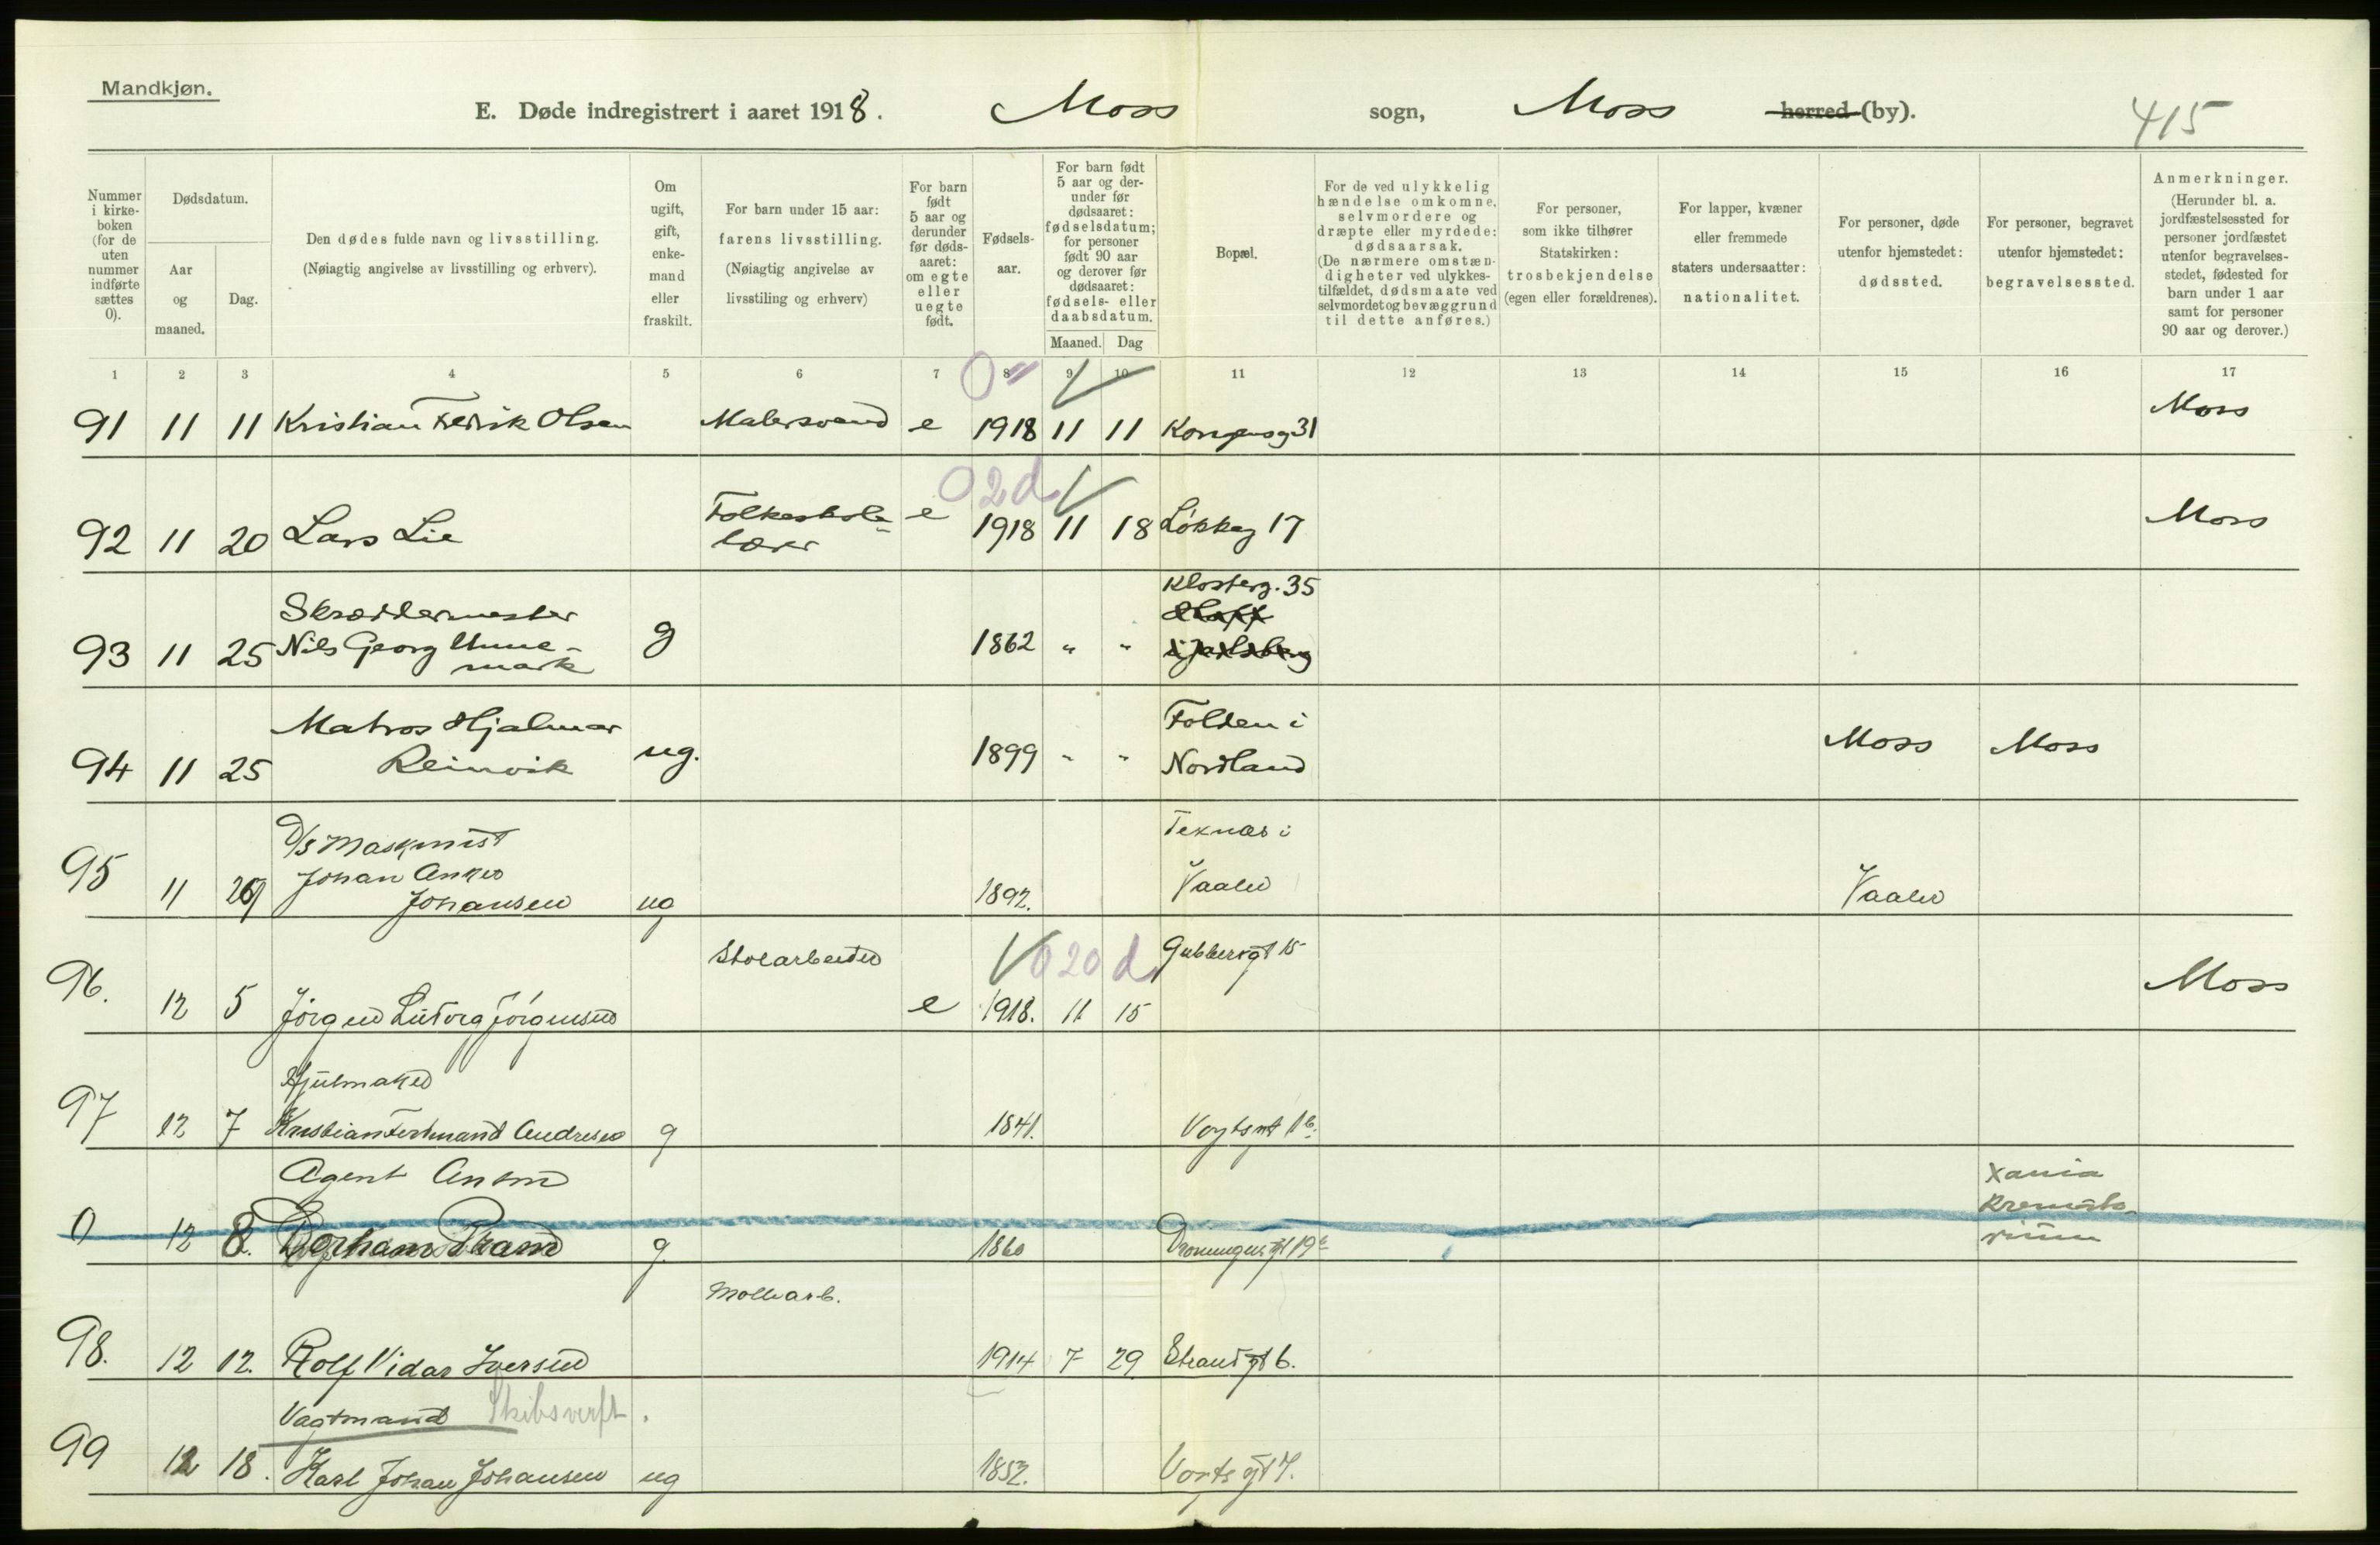 Mandkjøn.
E. Døde indregistrert i aaret 1918. Moss sogn, Moss herred (by). 415
Nummer i kirke-boken (for de uten nummer indførte sættes 0).
Dødsdatum.
Aar og maaned.
Dag.
Den dødes fulde navn og livsstilling.
(Nøiagtig angivelse av livsstilling og erhverv).
Om ugift, gift, enke-mand eller fraskilt.
For barn under 15 aar: farens livsstilling.
(Nøiagtig angivelse av livsstiling og erhverv)
For barn født 5 aar og derunder før døds-aaret: om egte eller uegte født.
Fødsels-aar.
For barn født 5 aar og der-under før dødsaaret: fødselsdatum; for personer født 90 aar og derover før dødsaaret: fødsels- eller daabsdatum.
Maaned. Dag
Bopæl.
For de ved ulykkelig hændelse omkomne, selvmordere og dræpte eller myrdede: dødsaarsak.
(De nærmere omstæn-digheter ved ulykkes-tilfældet, dødsmaate ved selvmordet og bevæggrund til dette anføres.)
For personer, som ikke tilhører Statskirken: trosbekjendelse (egen eller forældrenes).
For lapper, kvæner eller fremmede staters undersaatter: nationalitet.
For personer, døde utenfor hjemstedet: dødssted.
For personer, begravet utenfor hjemstedet: begravelsessted.
Anmerkninger.
(Herunder bl. a. jordfæstelsessted for personer jordfæstet utenfor begravelses-stedet, fødested for barn under 1 aar samt for personer 90 aar og derover.)
1 2 3 4 5 6 7 8 9 10 11 12 13 14 15 16 17
0
91 11 11 Kristian Fredrik Olsen Malersvend e 1918 11 11 Kongensg 31 Moss
0 2d
92 11 20 Lars Lie Folkeskole-
lærer e 1918 11 18 Løkkeg 17 Moss
Klosterg. 35
Skræddermester
93 11 25 Nils Georg Unne-
mark g 1862 " "
Matros Hjalmar Folden i
94 11 25 Reinvik ug. 1899 " " Nordland Moss Moss
D/S Maskinist
95 11 Johan Anker
Johansen ug 1892. Vaaler Vaaler
Stolarbeider 0 20 d Gubbensgt 15
96. 12 5 Jørgen Ludvig Jørgensen e 1918. 11 15 Moss
Hjulmaker
97 12 7 Kristian Ferdinand Andresen g 1841. Vogtsgt 16.
Agent Anton Xania
Kremato-
rium
0 12 8. g. 1860 Dronningensgt 19
Mollearb.
98. 12 12. Rolf Vidar Iversen 1914 7 29 Strandgt 6.
Vagtmand Skibsverft.
99 12 18. Karl Johan Johansen ug 1852. Vogtsgt 7.